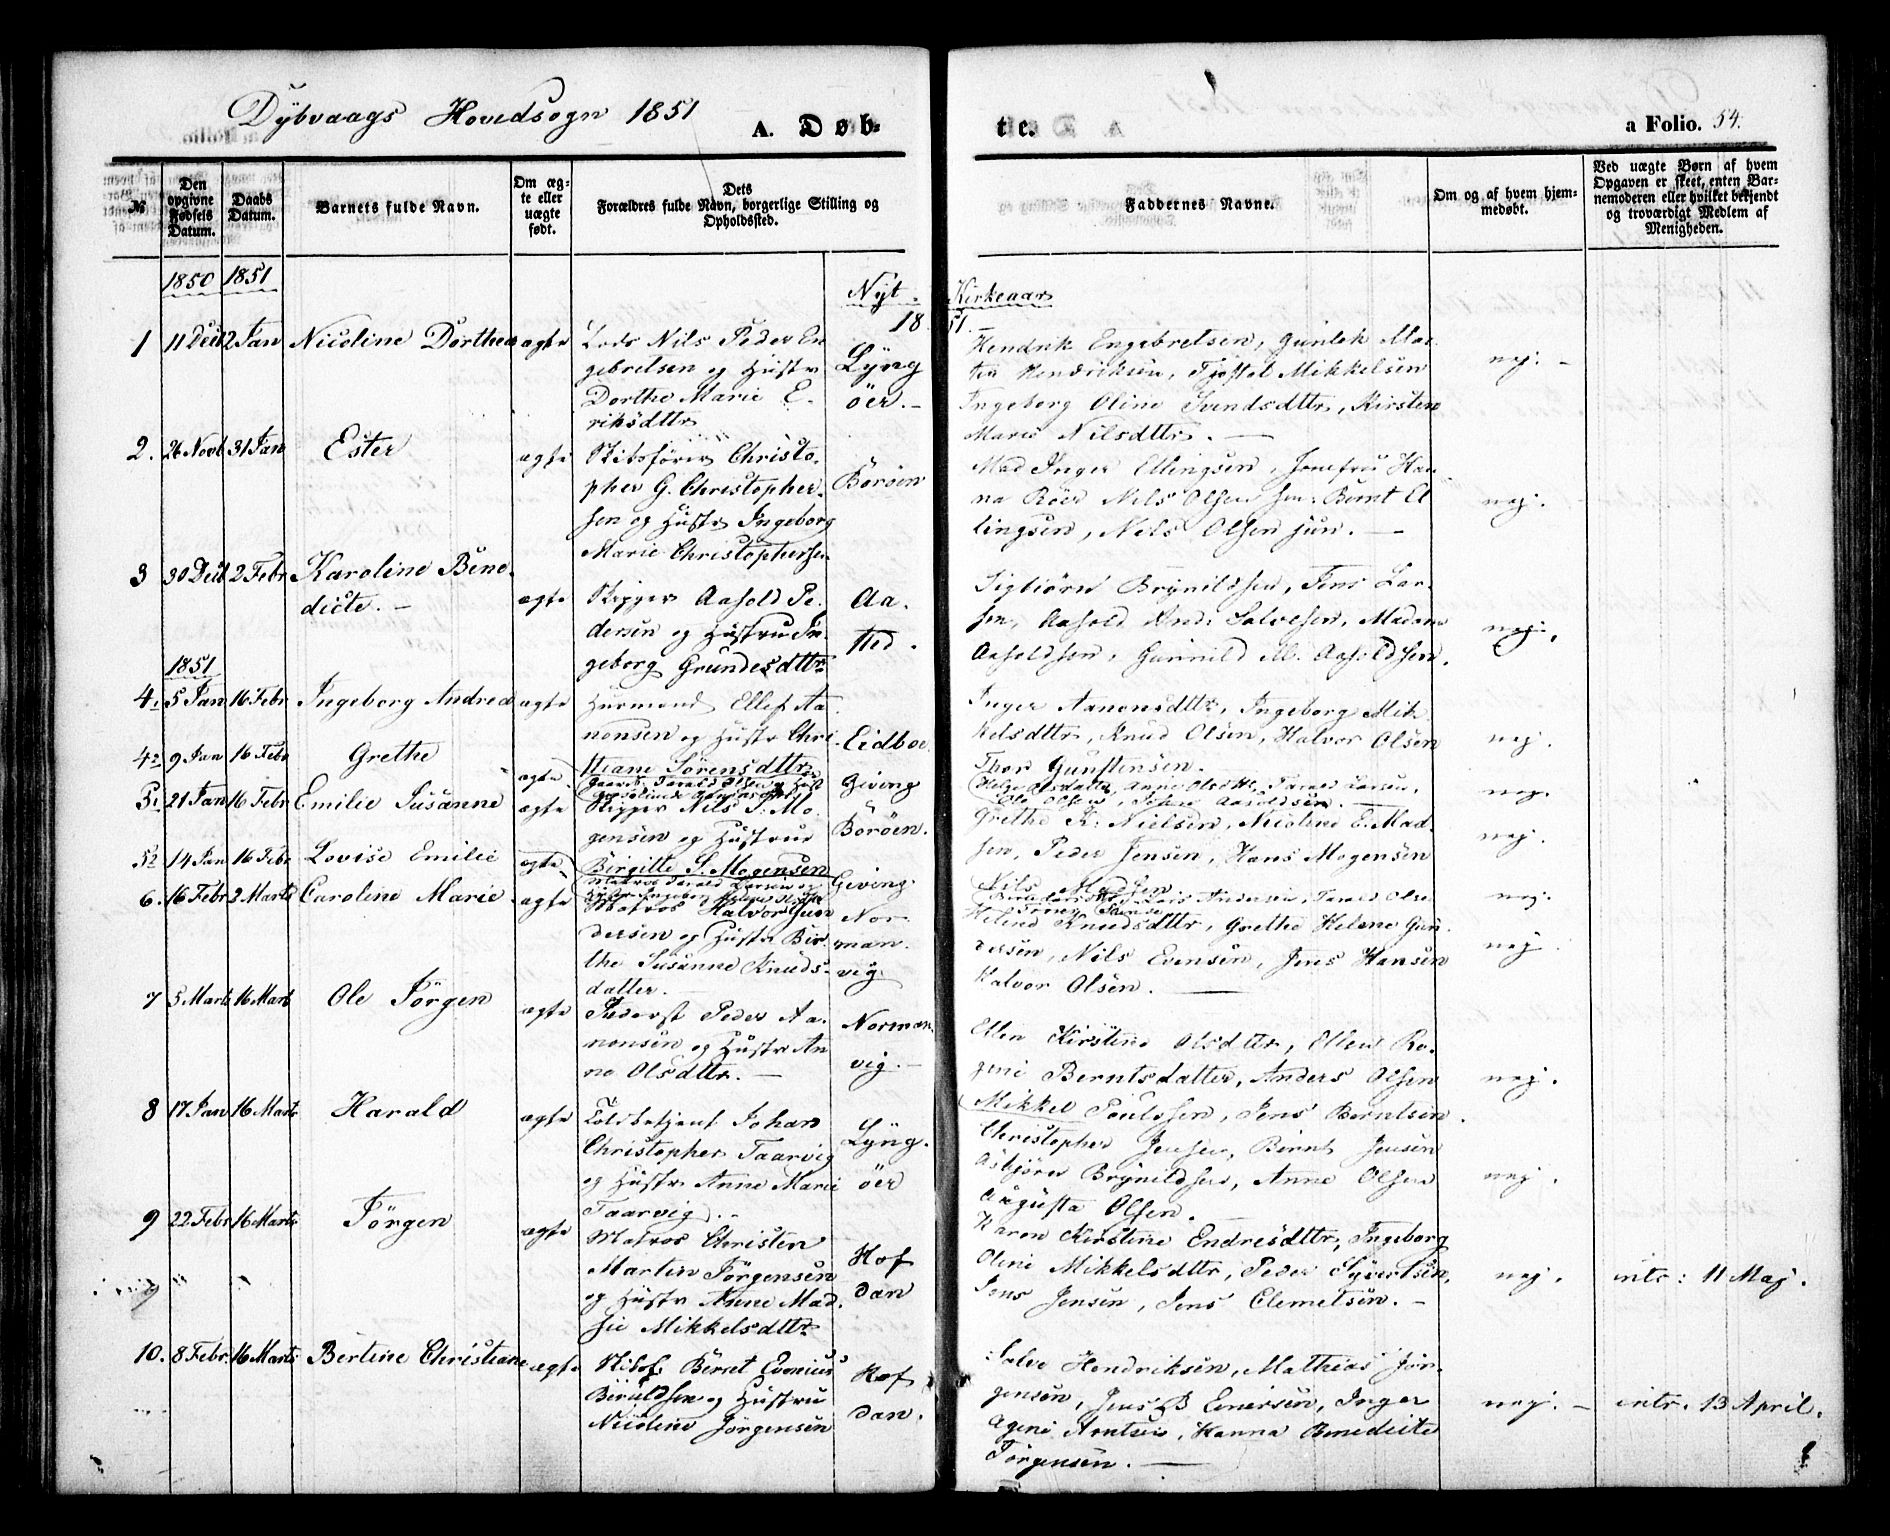 Dybvaags Hovedsogn 1851
A. Døb-
te.
a Folio. 54.
№
Den opgivne Fødsels Datum.
Daabs Datum.
Barnets fulde Navn.
Om ægte eller uægte født.
Dets Forældres fulde Navn, borgerlige Stilling og Opholdsted.
Faddernes Navne.
Om og af hvem hjemmedøbt.
Ved uægte Børn af hvem Opgaven er skeet, enten Barnemoderen eller hvilket bekjendt og troværdigt Medlem af Menigheden.
1850 1851
Nyt Kirkeaar
1851.
1 11 Decb 2 Jan Nicoline Dorthea ægte
Lods Nils Peder En
gebretsen og Hustr
Dorthe Marie E.
riksdttr
Lyng
öer. -
Hendrik Engebretsen, Gunlek Mar
tin Hendriksen, Tjöstel Mikkelsen
Ingeborg Oline Svendsdttr, Kirsten
Marie Nilsdttr. -
nej. -
2. 26 Novb 31 Jan Ester ægte
Skibsförer Christo-
pher G. Christopher-
sen og Hustr Ingeborg
Marie Christophersen
Boröen
Mad Inger Ellingsen, Jomfru Han
na Röer Nils Olsen sen: Bernt El
lingsen, Nils Olsen jun. -
nej.
3 30 Decb 2 Febr Karoline Bene-
dicte. - ægte
Skipper Aasold Pe-
dersen og Hustru In-
geborg Grundesdttr
Aa-
sted.
Sigbiörn Brynildsen, Jens Lar-
sen, Aasold And: Salvesen, Madam
Aasoldsen, Gunnild M. Aasoldsen.
nej.
1851
4.1 5 Jan 16 Febr Ingeborg Andrea ægte
Huusmand Ellef Aa
nonsen og Hustr Chri
stiane Sörensdttr
Eidboe
Inger Aanonsdttr, Ingeborg Mik
kelsdttr, Knud Olsen, Halvor Olsen
Thor Gunstensen.
nej.
4.2 9 Jan 16 Febr Grethe ægte
Gaardb. Tarald Olsen og Hust
Giving
Ole Olsen, Aasoldsen. -
nej.
5.1 21 Jan 16 Febr Emilie Susanne ægte
Skipper Nils S. Mo-
gensen og Hustrue
Birgitte S. Mogensen
Boröen.
Grethe K. Nielsen, Nicoline E. Mad-
sen, Peder Jensen, Hans Mogensen
Nils Madsen
nej.
5.2 14 Jan 16 Febr Lovise Emilie ægte
Matros Tarald Larsen og
Giving.
Lars Andersen, Tarald Olsen
nej.
6. 16 Febr 2 Marts Caroline Marie. ægte
Matros Halvor Gun
dersen og Hustr Bir-
the Susanne Knuds-
datter. -
Nor
man.
vig.
Helene Knudsdttr, Grethe Helene Gun-
dersen, Nils Evensen, Jens Hansen
Halvor Olsen. -
nej.
7 5 Marts 16 Mart Ole Jörgen ægte
Inderst Peder Aa-
nonsen og Hustr An
ne Olsdttr. -
Norman
vig. -
Ellen Kirstine Olsdttr, Ellen Ra-
gine Berntsdatter, Anders Olsen
Mikkel Poulsen, Jens Berntsen.
nej.
8 17 Jan 16 Marts Harald ægte
Toldbetjent Johan
Christopher Taarvig
og Hustr Anne Marie
Taarvig. -
Lyng-
öer
Christopher Jensen, Bernt Jensen
Asbjörn Brynildsen, Anne Olsen
Augusta Olsen. -
nej.
9 22 Febr 16 Marts Jörgen ægte
Matros Christen
Martin Jörgensen
og Hustr Anne Mad.
sie Mikkelsdttr
Hof
dan
Karen Kirstine Endresdttr, Ingeborg
Oline Mikkelsdttr, Peder Syvertsen,
Jens Jensen, Jens Clemetsen. -
nej. intr: 11 Maj.
10. 8 Febr. 16 Marts Bertine Christiane ægte
Skibsf. Berret Evenius
Beruldsen og Hustru
Nicoline Jörgensen
Hof
dan.
Salve Hendriksen, Mathias Jör-
gensen, Jens B Einersen, Inger
Agine Arntsen, Hanna Benedicte
Jörgensen. -
nej. - intr. 13 April.